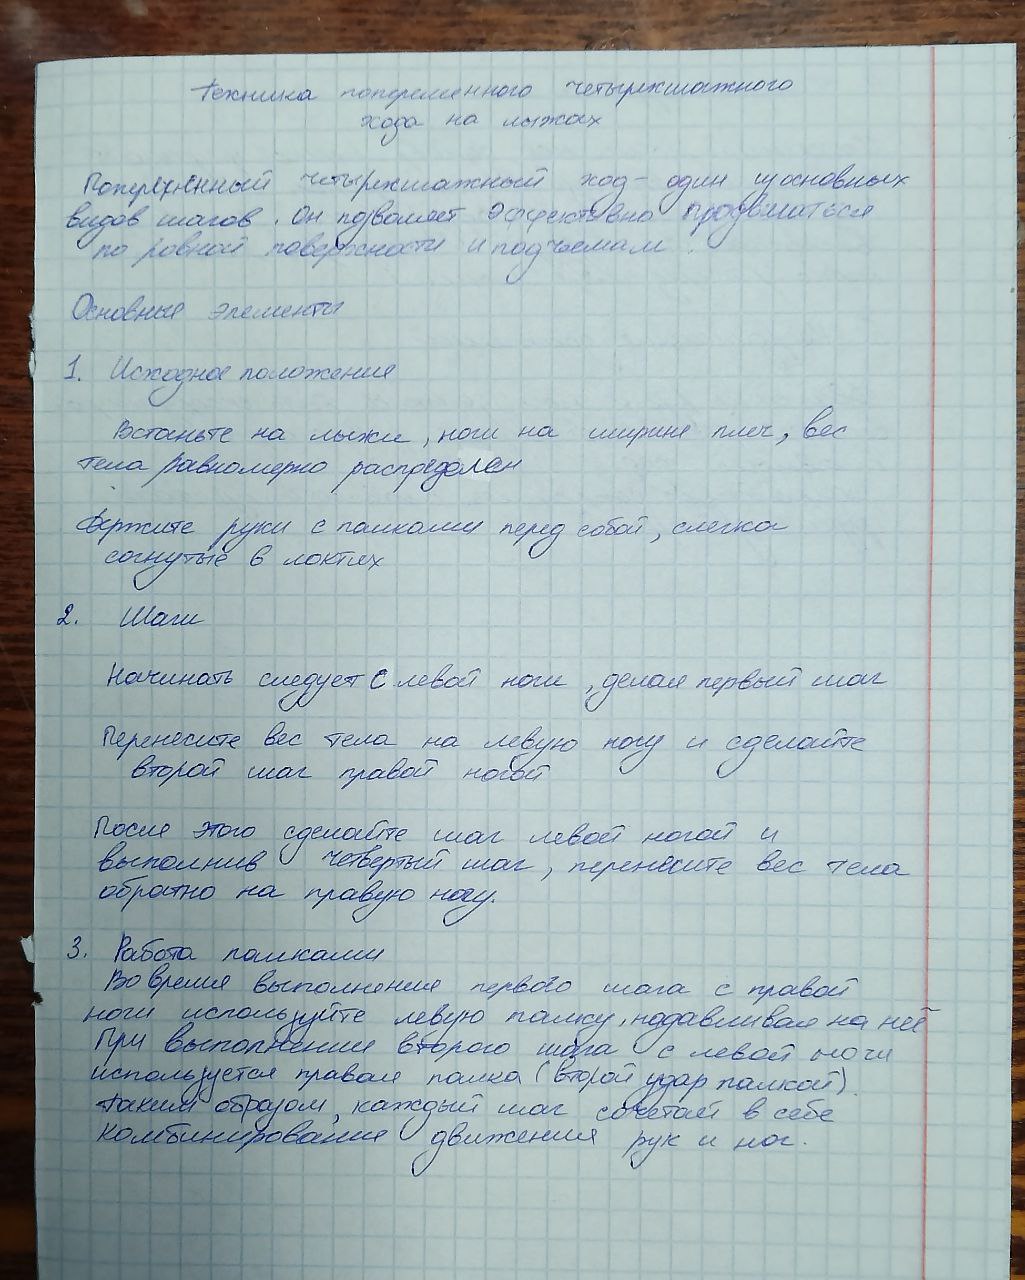 Техника попеременного четырехшажного
хода на лыжах
Попеременный четырехшажный ход - один из основных
видов шагов. Он позволяет эффективно продвигаться
по ровной поверхности и подъемам.
Основные элементы
1. Исходное положение
Встаньте на лыжи, ноги на ширине плеч, вес
тела равномерно распределен
Держите руки с палками перед собой, слегка
согнутые в локтях
2. Шаги
Начинать следует с левой ноги, делая первый шаг
Перенесите вес тела на левую ногу и сделайте
второй шаг правой ногой
После этого сделайте шаг левой ногой и
выполнив четвертый шаг, перенесите вес тела
обратно на правую ногу.
3. Работа палками
Во время выполнения первого шага с правой
ноги используйте левую палку, надавливая на неё
При выполнении второго шага с левой ноги
используется правая палка (второй удар палкой).
Таким образом, каждый шаг сочетай в себе
комбинирование движения рук и ног.